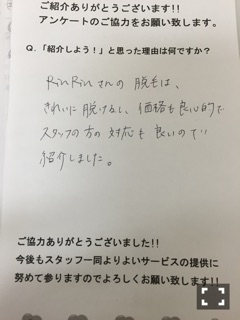 ご紹介ありがとうございます!!
アンケートのご協力をお願い致します。
Q.「紹介しよう！」と思った理由は何ですか？
RinRinさんの脱毛は、
きれいに脱けるし、価格も良心的で
スタッフの方の対応も良いので
紹介しました。
ご協力ありがとうございました!!
今後もスタッフ一同よりよいサービスの提供に
努めて参りますのでよろしくお願い致します!!